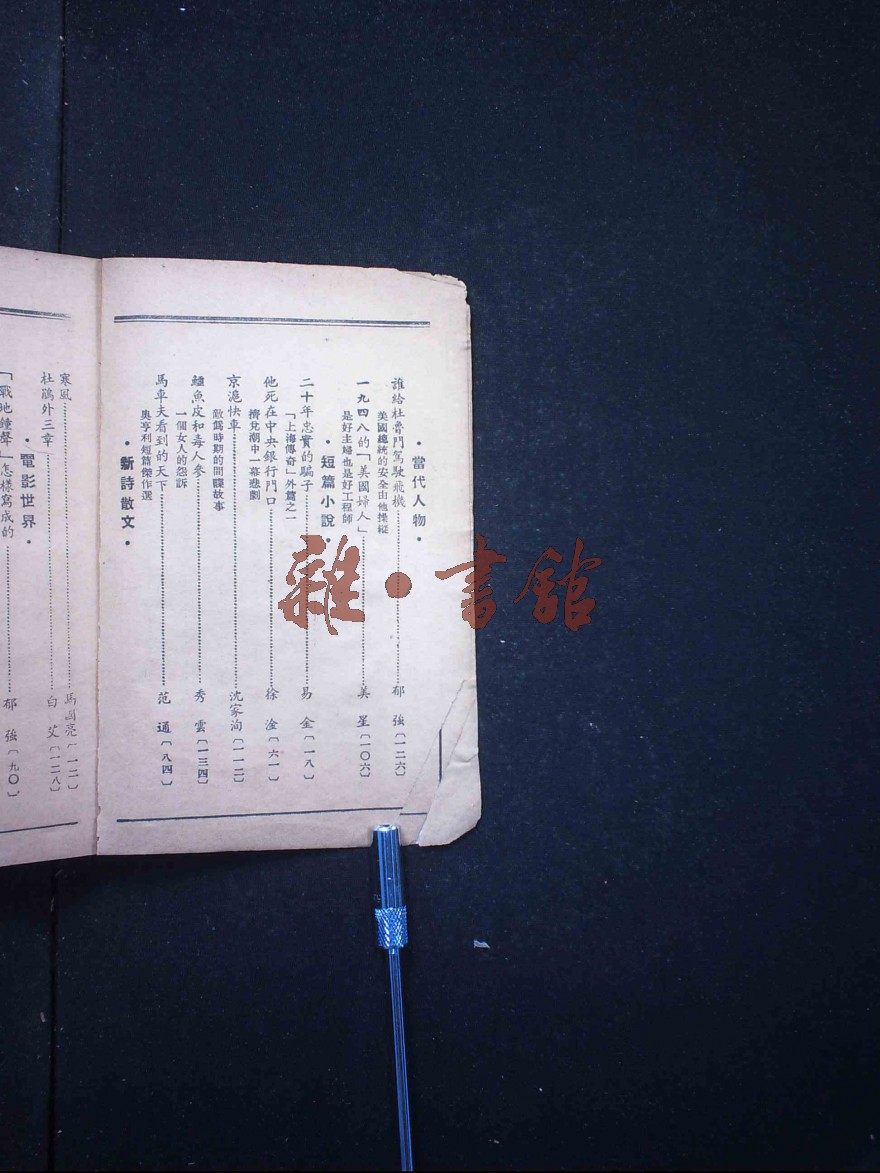 •當代人物•
誰給杜魯門駕駛飛機………郁 強〔一二六〕
美國總統的安全由他操縱
一九四八的「美國婦人」………美 星〔一〇六〕
是好主婦也是好工程師
•短篇小說•
二十年忠實的騙子………易 金〔一八〕
「上海傳奇」外篇之一
他死在中央銀行門口………徐 淦〔六一〕
擠兌潮中一幕悲劇
京滬快車………沈家洵〔一一二〕
敵僞時期的間諜故事
鱷魚皮和毒人參………秀 雲〔一三四〕
一個女人的怨訴
馬車夫看到的天下………范 通〔八四〕
奧亨利短篇傑作選
•新詩散文•
寒風………馬國亮〔一二〕
杜鵑外三章………白 艾〔一二八〕
•電影世界•
「戰地鐘聲」怎樣寫成的………郁 強〔九〇〕
雜•書館